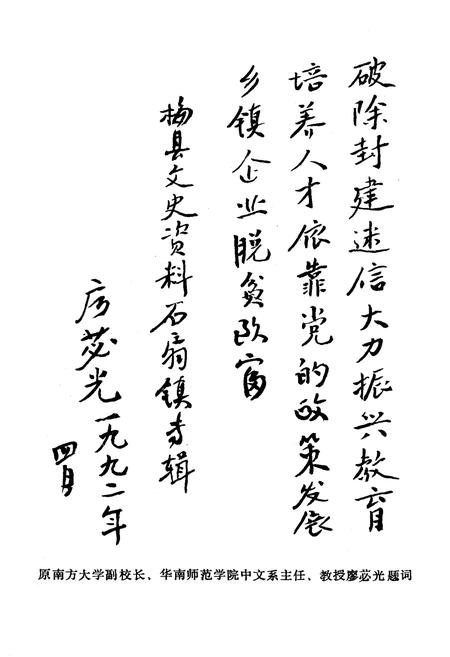 破除封建迷信大力振兴教育
培养人才依靠党的政策发展
乡镇企业脱贫致富
梅县文史资料石扇镇专辑
廖苾光一九九二年
四月
原南方大学副校长、华南师范学院中文系主任、教授廖苾光题词